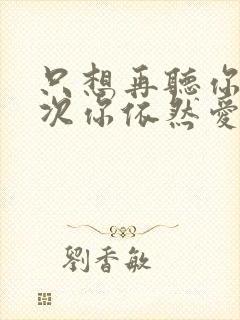 只想再聽你
次你依然愛
劉香敏